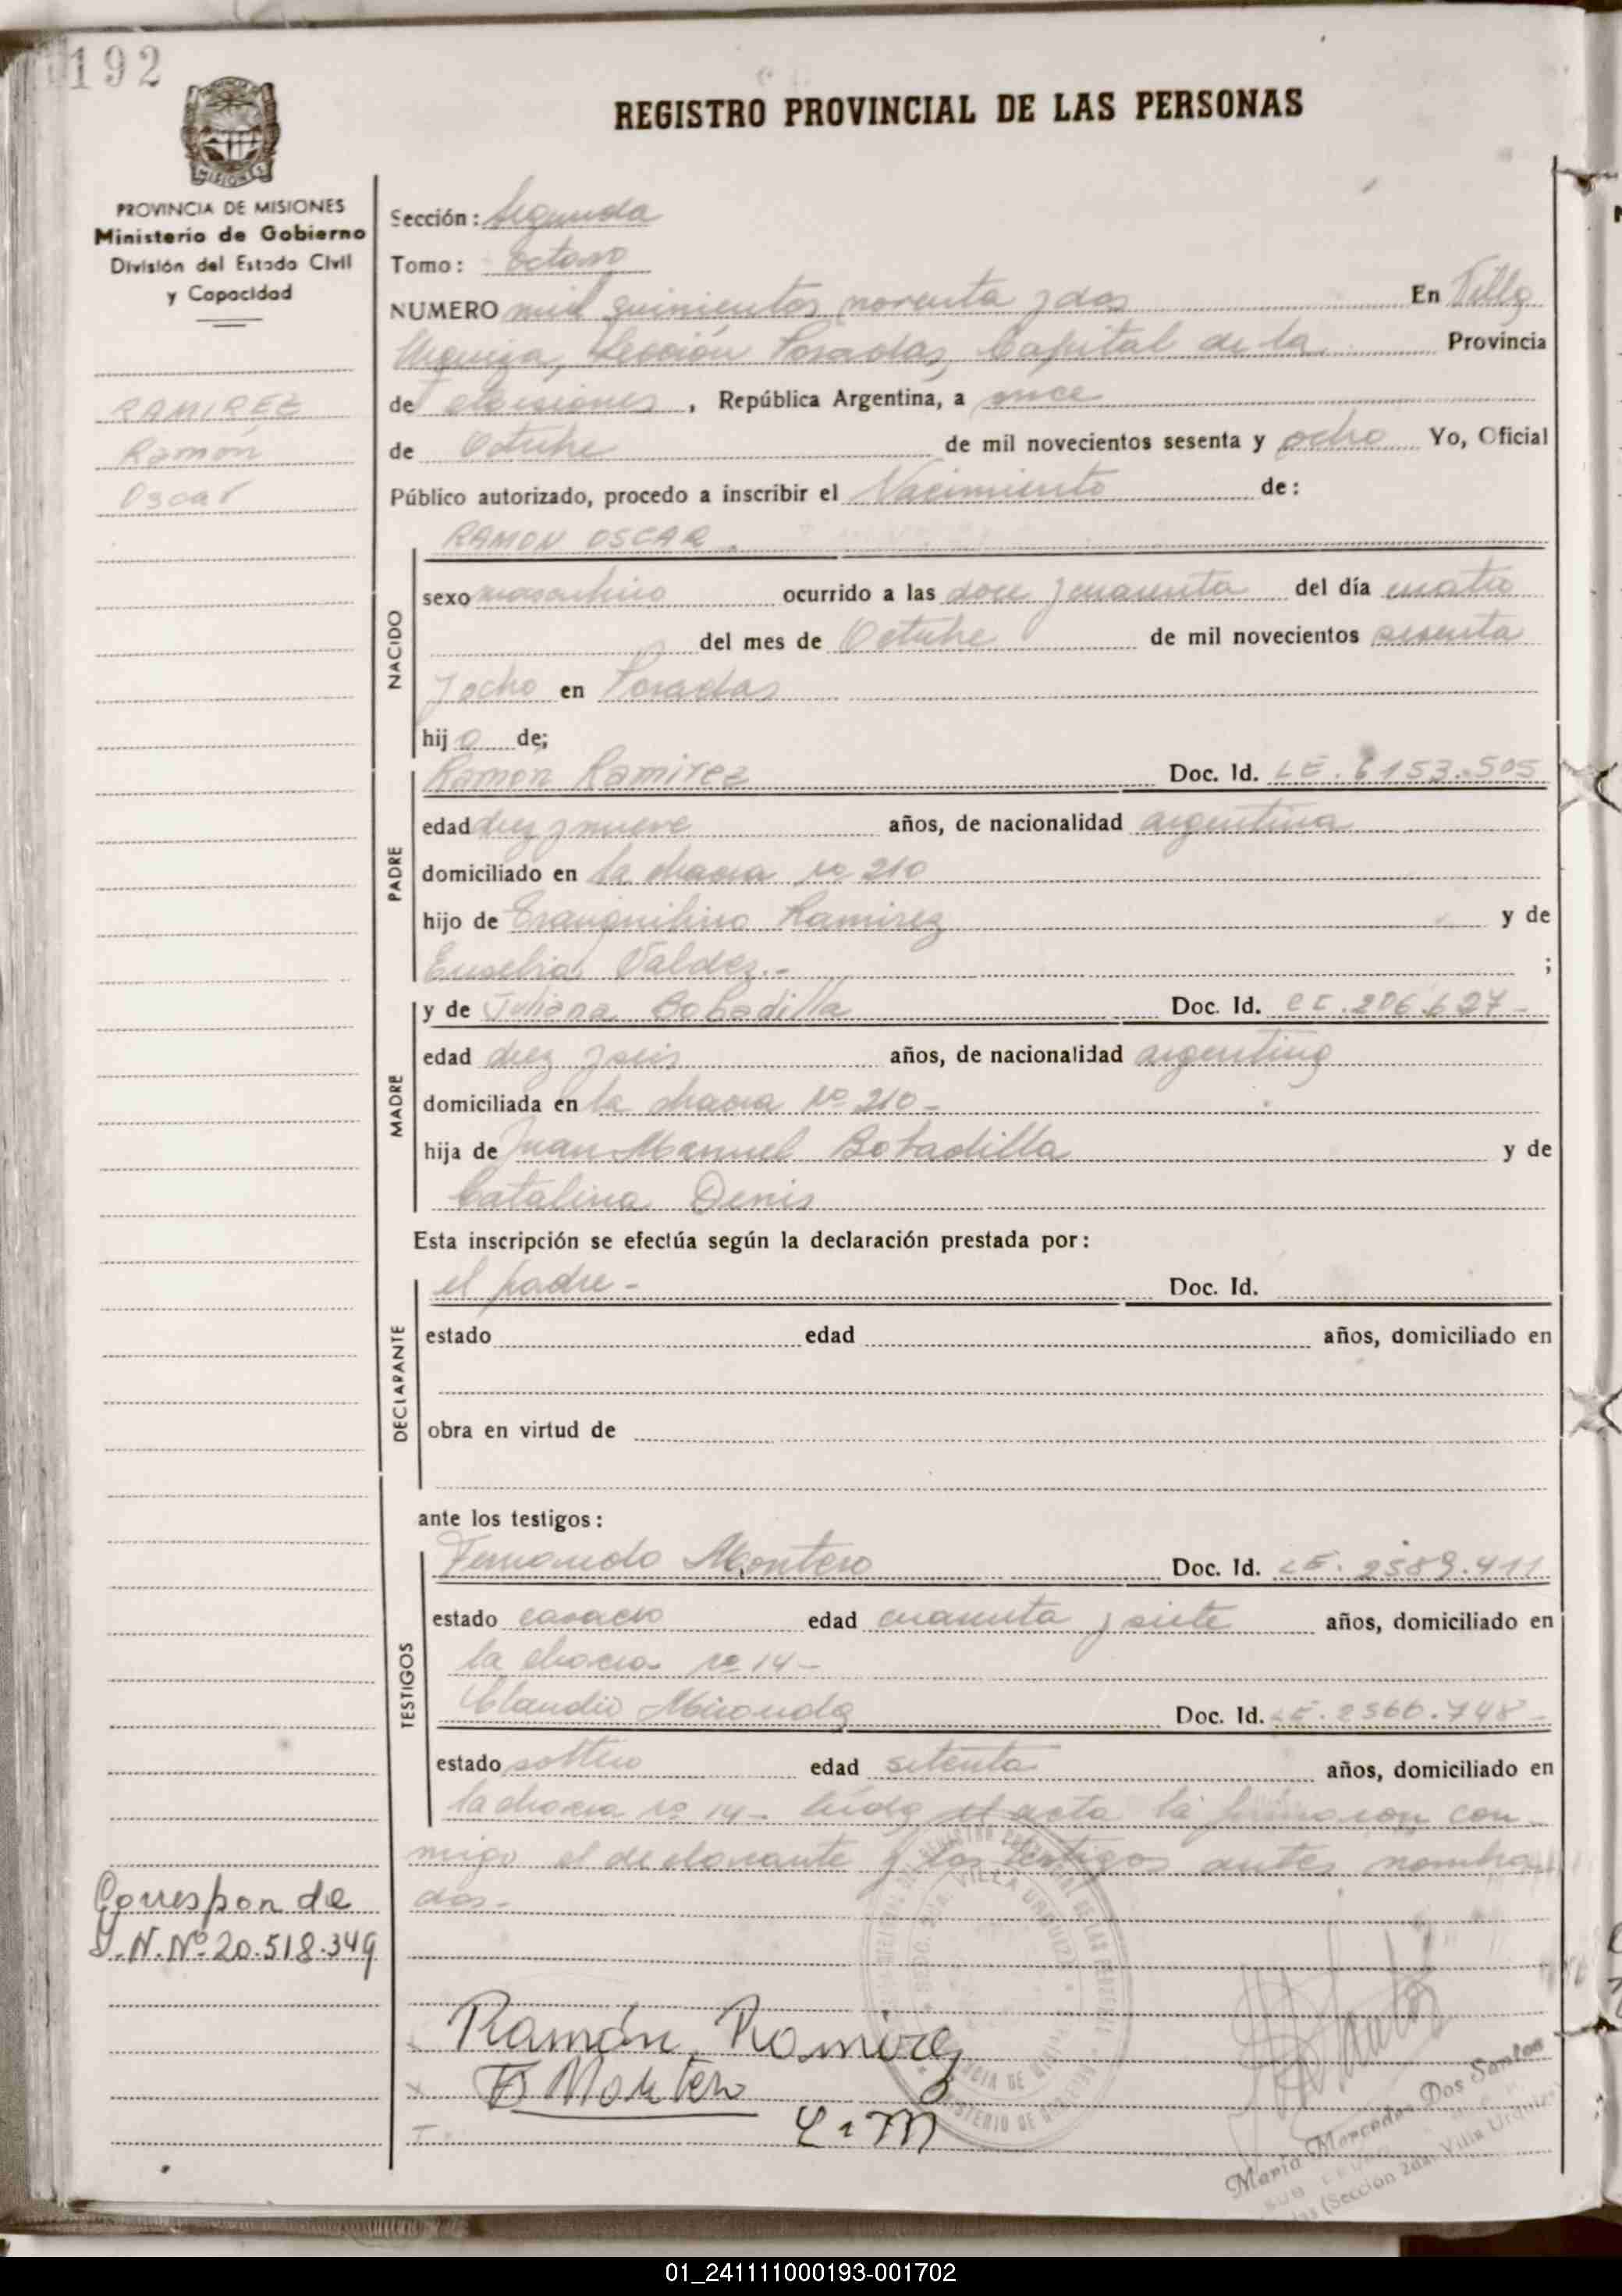 192
REGISTRO PROVINCIAL DE LAS PERSONAS
MISIONES
PROVINCIA DE MISIONES
Ministerio de Gobierno
División del Estado Civil
y Capacidad
RAMIREZ
Ramón
Oscar
Sección: Segunda
Tomo: Octavo
NUMERO mil quinientos noventa y dos En Villa
Urquiza, Sección Posadas, Capital de la Provincia
de Misiones, República Argentina, a once
de Octubre de mil novecientos sesenta y ocho Yo, Oficial
Público autorizado, procedo a inscribir el Nacimiento de:
NACIDO
RAMON OSCAR.
sexo masculino ocurrido a las doce y cuarenta del día cuatro
del mes de Octubre de mil novecientos sesenta
y ocho en Posadas
hijo de;
PADRE
Ramón Ramirez Doc. Id. LE. 8153.505
edad diez y nueve años, de nacionalidad argentina
domiciliado en la chacra no 210
hijo de Tranquilino Ramirez y de
Eusebia Valdez.- ;
MADRE
y de Juliana Bobadilla Doc. Id. 206.627-
edad diez y seis años, de nacionalidad argentina
domiciliada en la chacra no 210-
hija de Juan Manuel Bobadilla y de
Catalina Denis
Esta inscripción se efectúa según la declaración prestada por:
DECLARANTE
el padre- Doc. Id.
estado edad años, domiciliado en
obra en virtud de
ante los testigos:
TESTIGOS
Fernando Montero Doc. Id. LE. 2589.411
estado casado edad cuarenta y siete años, domiciliado en
la chacra no 14-
Claudio Miranda Doc. Id. LE. 2566.748-
estado soltero edad setenta años, domiciliado en
la chacra no 14- leída el acta la firmaron con
migo el declarante y los testigos antes nombra
dos-
Corresponde
N. Nº 20.518.349
Ramón Ramirez
F Montero
María Mercedes Dos Santos
(Sección 2da. Villa Urquiza)
01_241111000193-001702